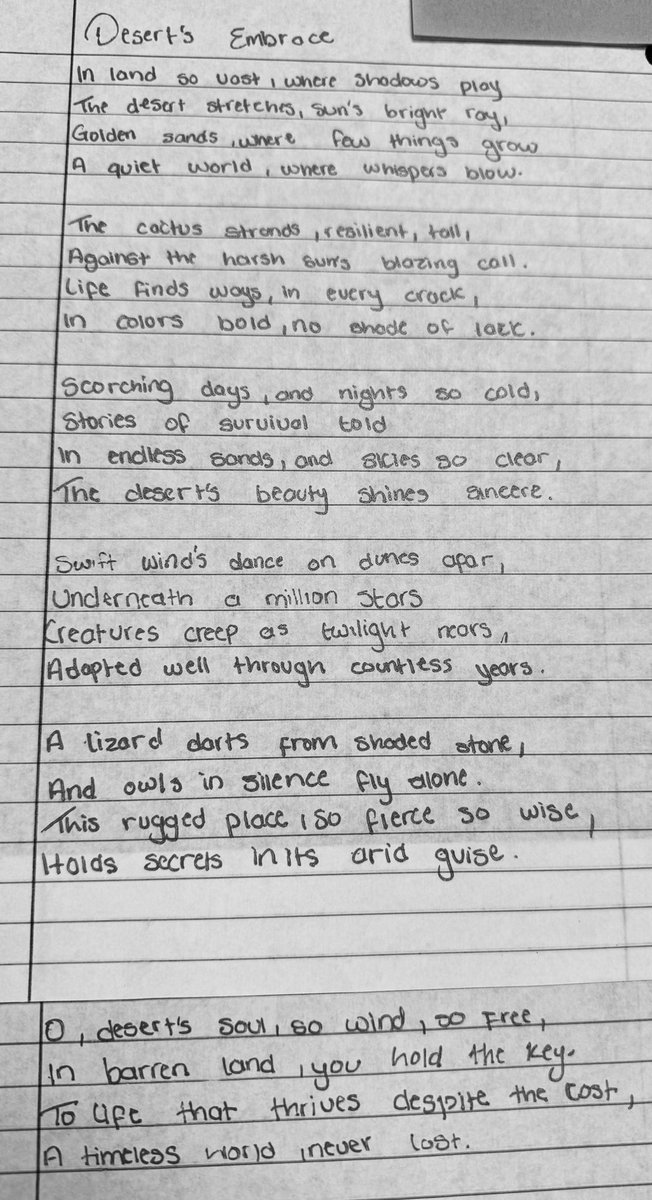 Desert's Embrace
In land so vast, where shadows play
The desert stretches, sun's bright ray,
Golden sands, where few things grow
A quiet world, where whispers blow.
The cactus strands, resilient, tall,
Against the harsh sun's blazing call.
Life finds ways, in every crack,
In colors bold, no shade of lack.
Scorching days, and nights so cold,
Stories of survival told
In endless sands, and skies so clear,
The desert's beauty shines sincere.
Swift wind's dance on dunes afar,
Underneath a million stars
Creatures creep as twilight nears,
Adapted well through countless years.
A lizard darts from shaded stone,
And owls in silence fly alone.
This rugged place, so fierce so wise,
Holds secrets in its arid guise.
O, desert's soul, so wind, so free,
In barren land, you hold the key.
To life that thrives despite the cost,
A timeless world, never lost.